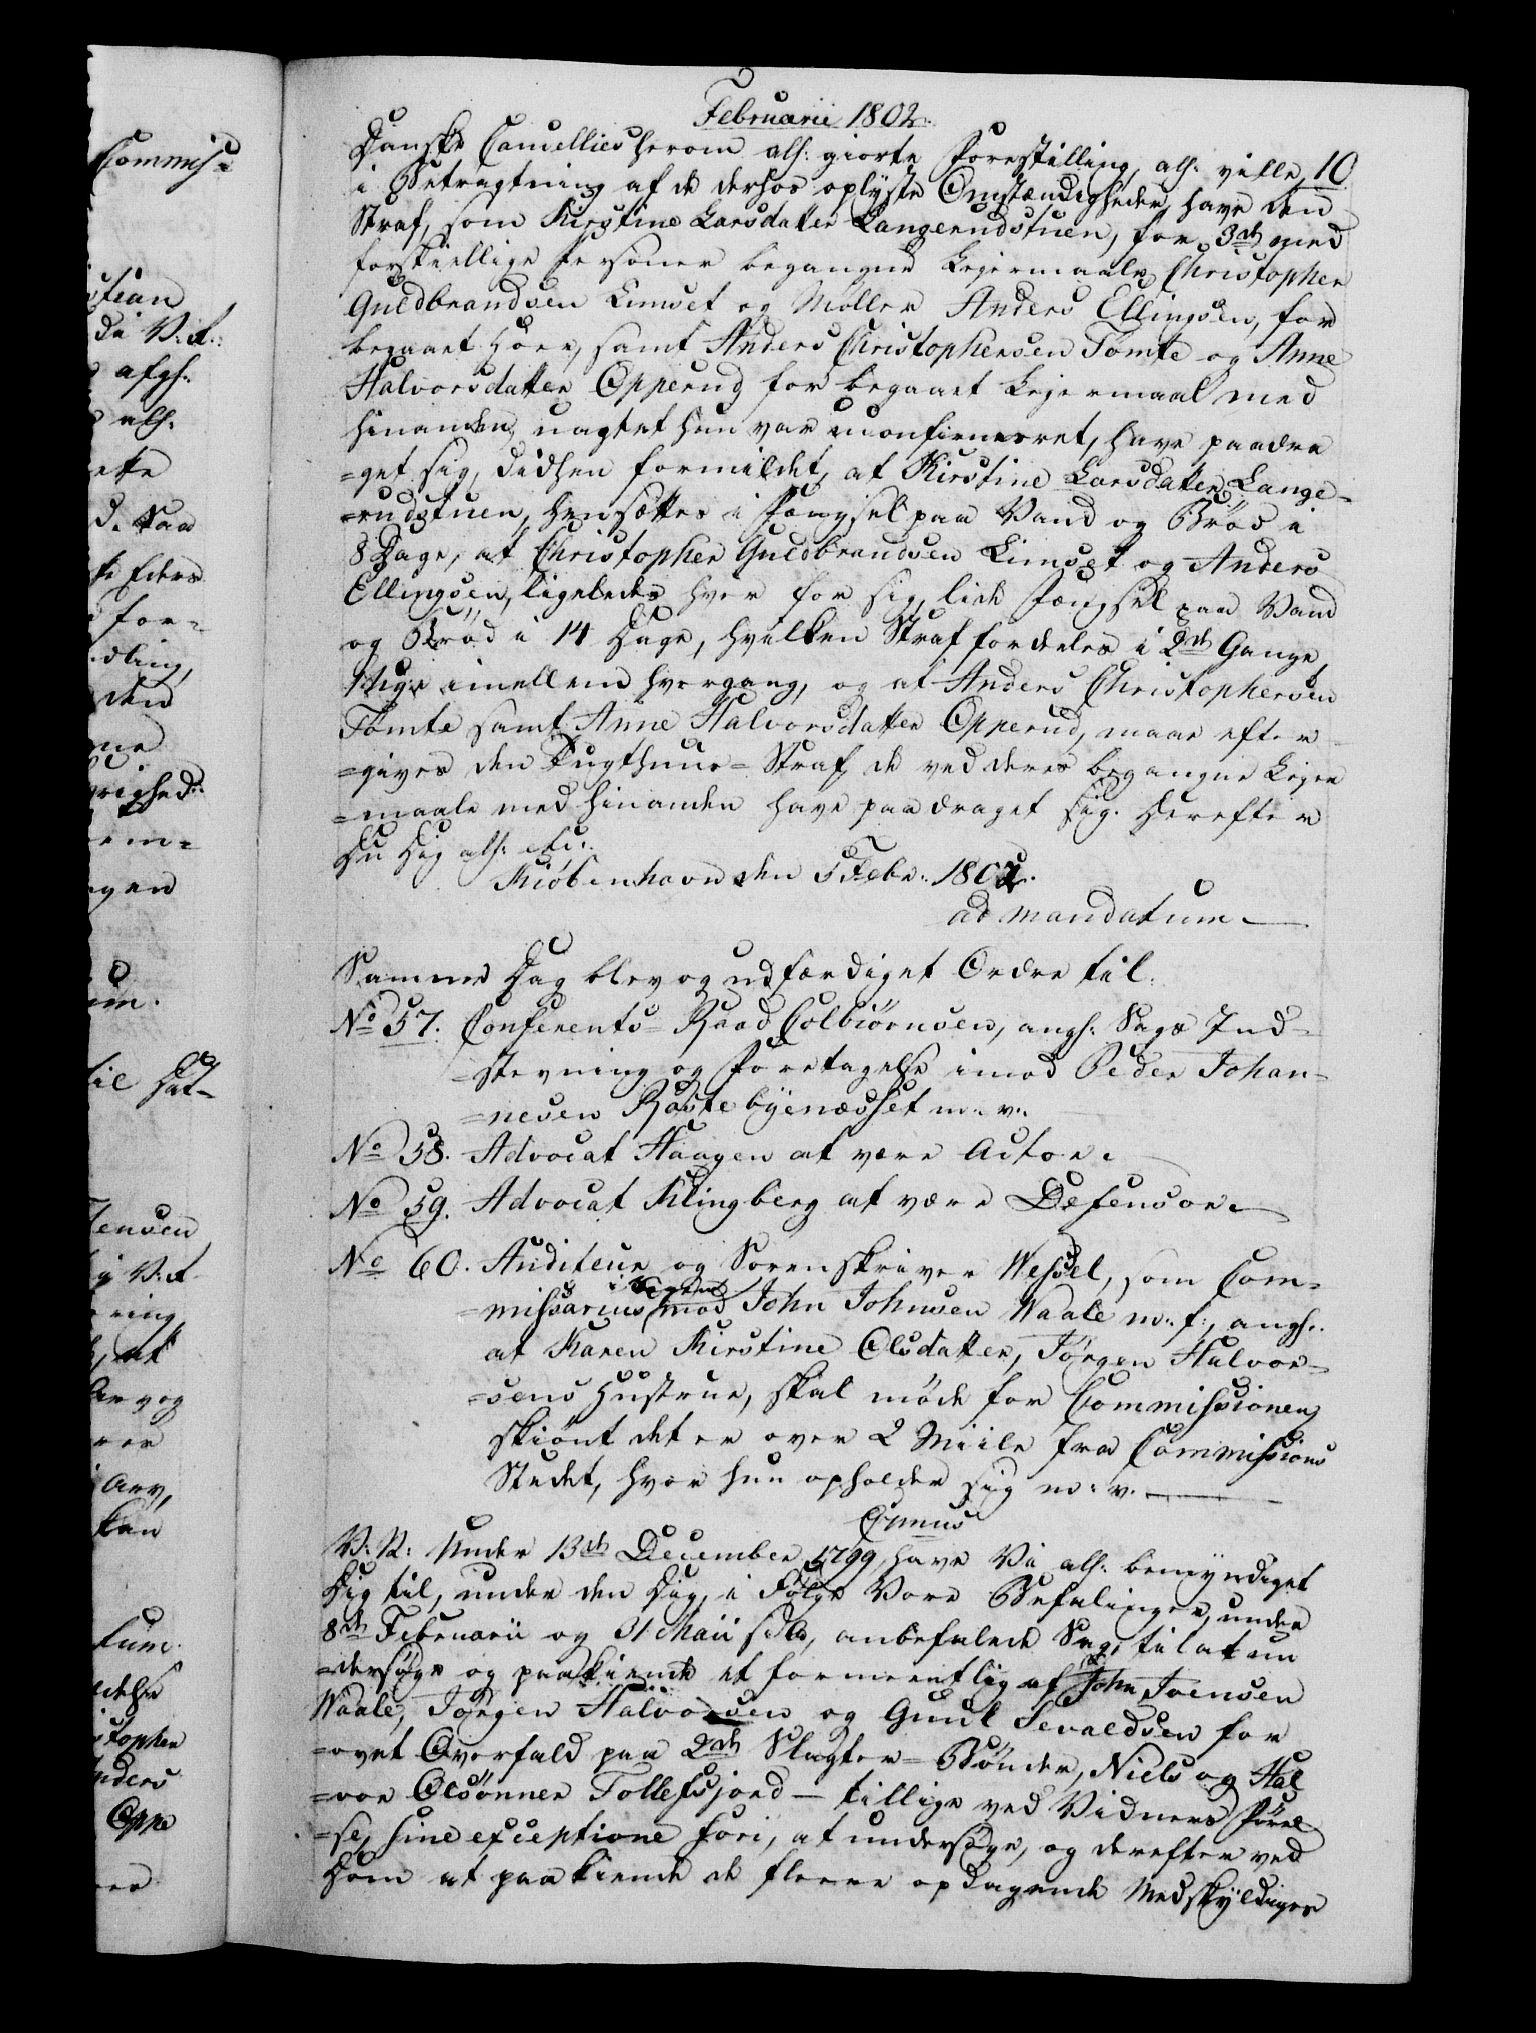 Februarii 1802.
10
Danske Cancellies herom alh: giorte Forestilling, alh: ville
i Betragtning af de derhos oplyste Omstændigheder, have den
Straf, som Kirstine Larsdatter Langerudstuen, for 3de med
forskiellige Personer begangne Leiermaale, Christopher
Guldbrandsen Limset og Møller Anders Ellingsen, for
begaaet Hoer, samt Anders Christophersen Tømte og Anne
Halvorsdatter Opperud for begaaet Leiermaal med
hinanden, uagtet hun var uconfirmeret, have paadra
=get sig, didhen formildet, at Kirstine Larsdatter Lange=
=rudstuen, hensættes i Fængsel paa Vand og Brød i
8 Dage, at Christopher Guldbrandsen Limset og Anders
Ellingsen, ligeledes hver for sig, lide Fængsel paa Vand
og Brød i 14 Dage, hvilken Straf fordeles i 2de Gange,
1 Uge imellem hvergang, og at Anders Christophersen
Tømte samt Anne Halvorsdatter Opperud, maae efter
=gives den Tugthuus=Straf, de ved deres begangne Leier
=maale med hinanden have paadraget sig. Herefter
Du Dig alh: etc:
Kiöbenhavn den 5 Febr: 1802.
ad mandatum.
Samme Dag blev og udfærdiget Ordre til:
No 57. Conferents=Raad Colbiørnsen, angh: Sags Ind=
=stevning og Foretagelse imod Peder Johan=
=nesen Røstebyenæsset m: v:
No 58. Advocat Haagen at være Actor.
No 59. Advocat Klingberg at være Defensor.
No 60. Auditeur og Sorenskriver Wessel, som Com=
i Sagen
=missarius mod John Johnsen Waale m: f:, angh:
at Karen Kirstine Olsdatter, Jørgen Halvor=
=sens Hustrue, skal møde for Commissionen,
skiönt det er over 2 Miile fra Commissions
Stedet, hvor hun opholder sig m: v.
V: K: Under 13de December 1799, have Vi alh: bemyndiget
Dig til, under den Dig, i Følge Vore Befalinger, under
8de Februarii og 31 Maii s: A:, anbefalede Sag, til at un
=dersøge og paakiende et formeentlig af John Joensen
Waale, Jørgen Halvorsen og Guul Sevaldsen for
=øvet Overfald paa 2de Slagter=Bønder, Niels og Hal
=vor Olsønner Tollefsjord — tillige ved Vidners Førel
=se, sine exceptione fori, at undersøge, og derefter ved
Dom at paakiende de fleere opdagende Medskyldiges